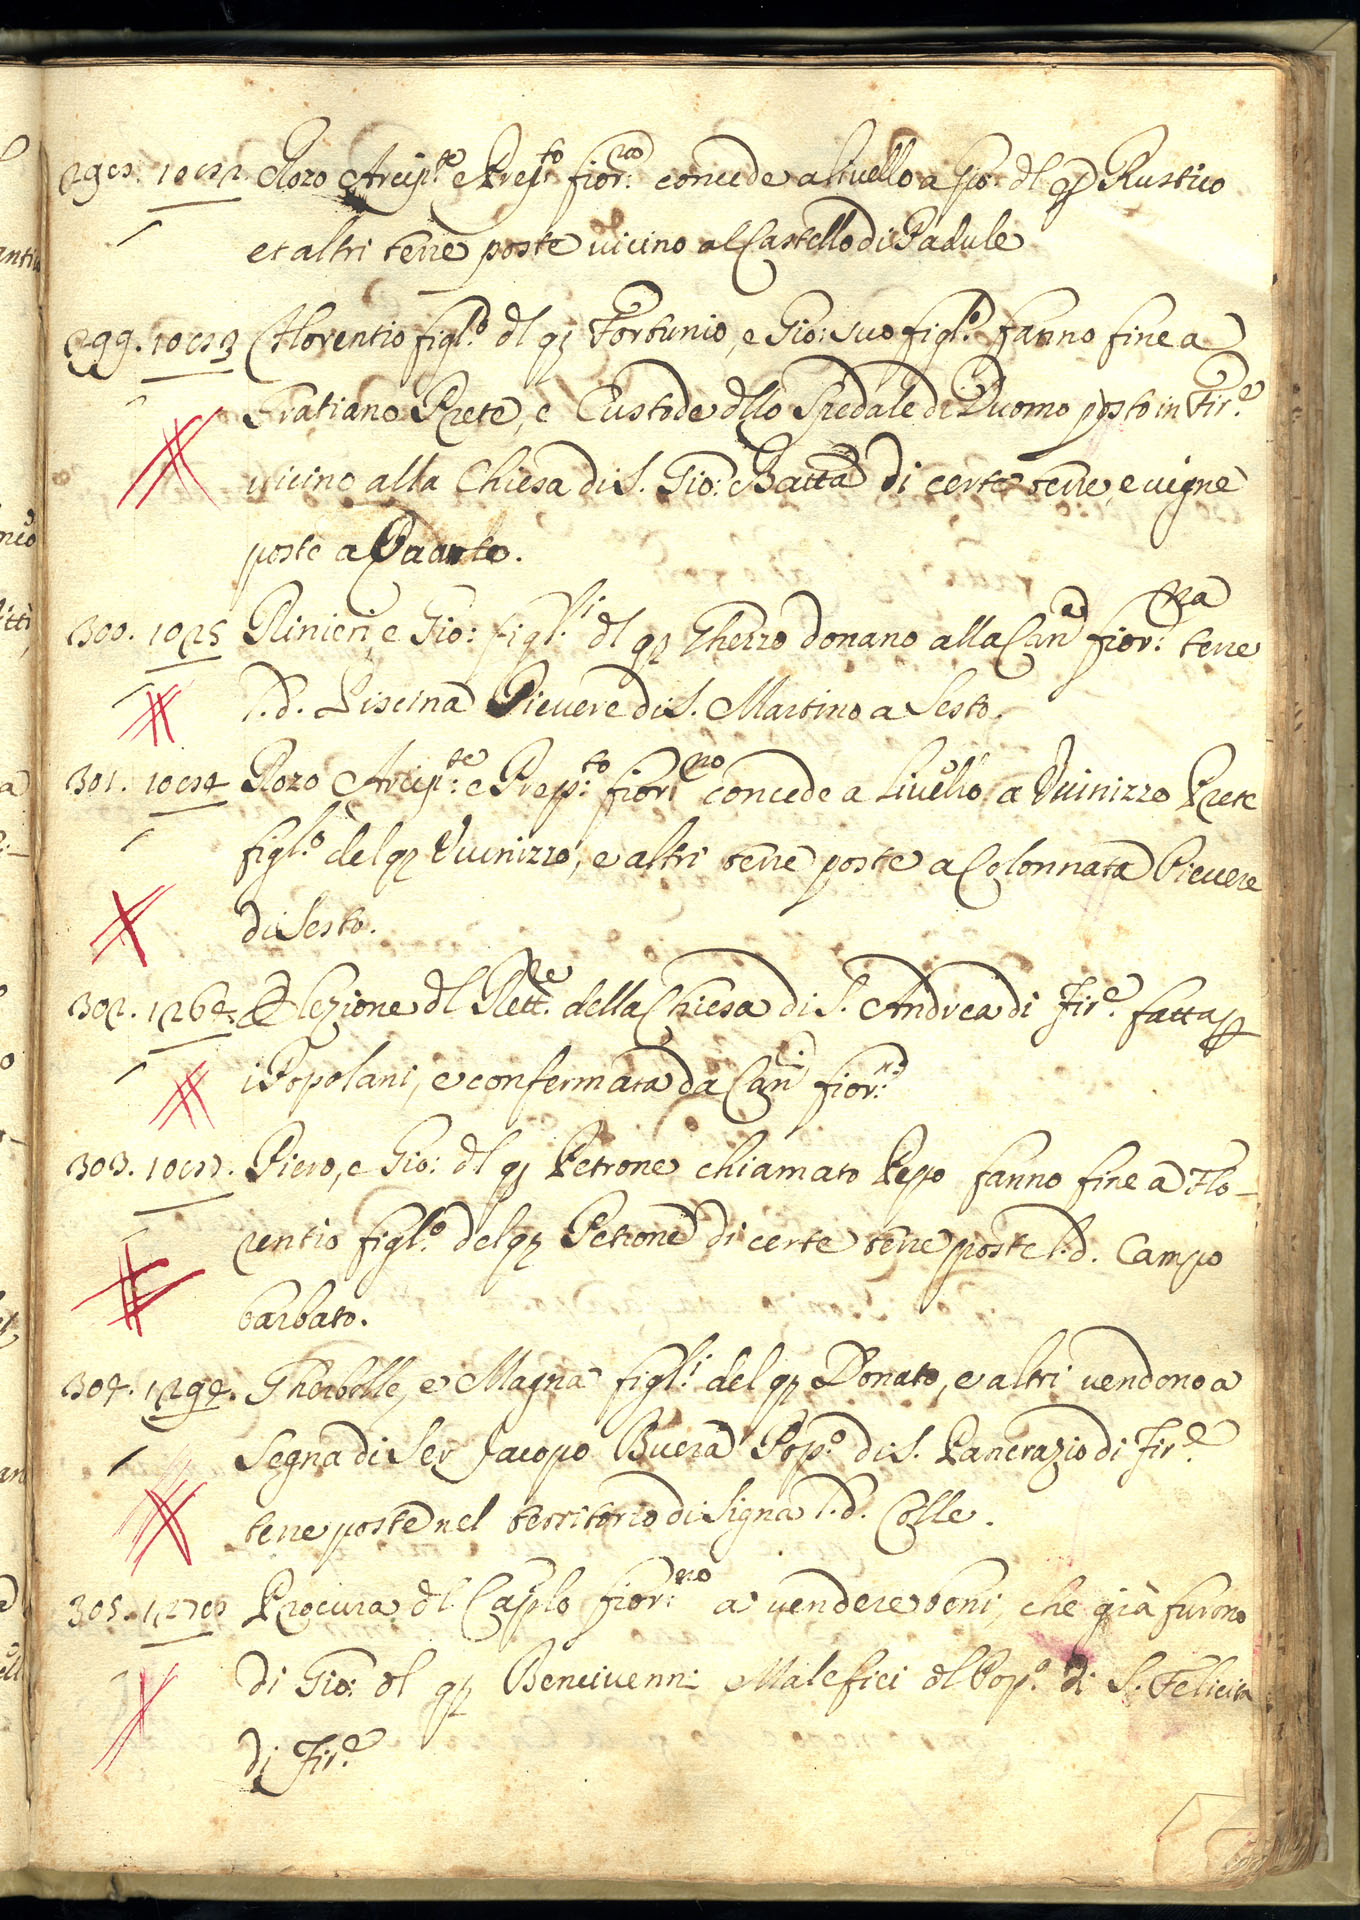 298. 1082. Rozo Arcip.te e Prep.to fior.no concede a livello a Gio: dl qp Rustico
et altri terre poste vicino al Castello di Padule
299. 1083 Florentio figl.o dl qp Fortunio, e Gio: suo figl.o fanno fine a
Gratiano Prete, e Custode dllo Spedale di Duomo posto in Fir.e
vicino alla Chiesa di S. Gio: Batta di certe terre, e vigne
poste a
300. 1025 Rinieri, e Gio: figl.li dl qp Gherzo donano alla Can.a fior.na terre
l.d. Piscina Pievere di S. Martino a Sesto.
301. 1084 Rozo Arcip.te e Prep.to fior.no concede a livello a Vuinizzo Prete
figl.o del qp Vuinizzo, e altri terre poste a Colonnata Pievere
di Sesto.
302. 1264. Elezione dl Rett.re della Chiesa di S. Andrea di Fir.e fatta p
i Popolani, e confermata da Can.i fior.ni
303. 1087. Piero, e Gio: dl qp Petrone chiamato Peppo fanno fine a Flo-
rentio figl.o del qp Petrone di certe terre poste l.d. Campo
barbato.
304. 1294. Gherbelle, e Magna figl.li del qp Donato, e altri vendono a
Segna di Ser Jacopo Buera Pop.o di S. Pancrazio di Fir.e
terre poste nel territorio di Signa l.d. Colle.
305. 1278 Procura dl Caplo fior.no a vendere beni, che già furono
di Gio: dl qp Bencivenni Malefici dl Pop.o di S. Felicita
di Fir.e